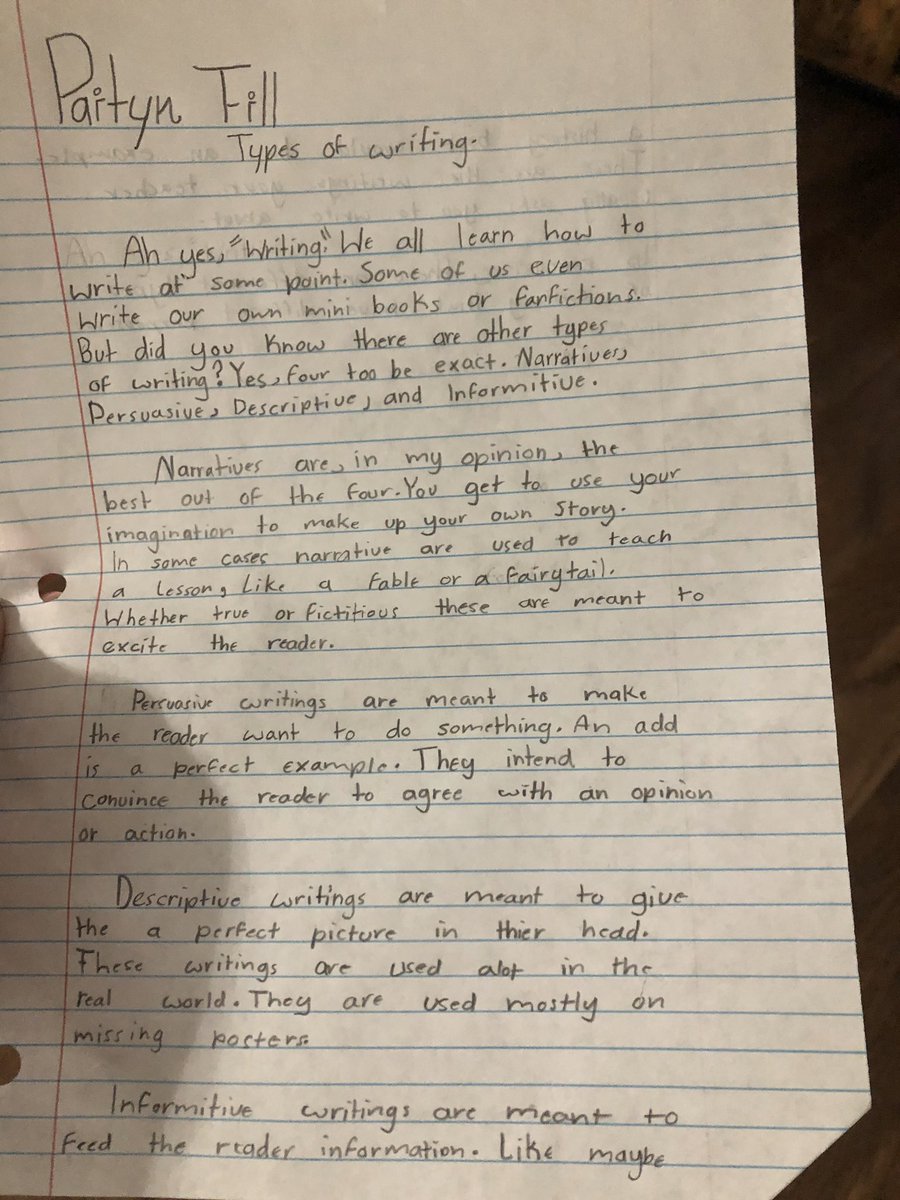 Paityn Fill
Types of writing.
Ah yes, "Writing." We all learn how to
write at some point. Some of us even
write our own mini books or fanfictions.
But did you know there are other types
of writing? Yes, four too be exact. Narratives,
Persuasive, Descriptive, and Informitive.
Narratives are, in my opinion, the
best out of the four. You get to use your
imagination to make up your own story.
In some cases narrative are used to teach
a lesson, like a fable or a fairytail.
Whether true or fictitious these are meant to
excite the reader.
Persuasive writings are meant to make
the reader want to do something. An add
is a perfect example. They intend to
convince the reader to agree with an opinion
or action.
Descriptive writings are meant to give
the a perfect picture in thier head.
These writings are used alot in the
real world. They are used mostly on
missing posters.
Informitive writings are meant to
feed the reader information. Like maybe